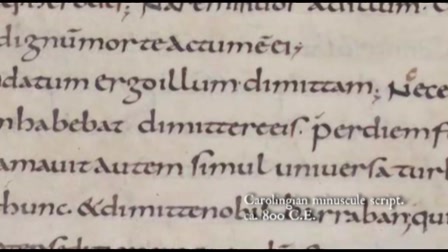 dignū morte actum ē ei;
datum ergo illum dimittam; Nece
n habebat dimittere eis. per diem f
amauit autem simul uniuersa tur
hunc. & dimitte nob arraban, qu
Carolingian minuscule script,
ca. 800 C.E.